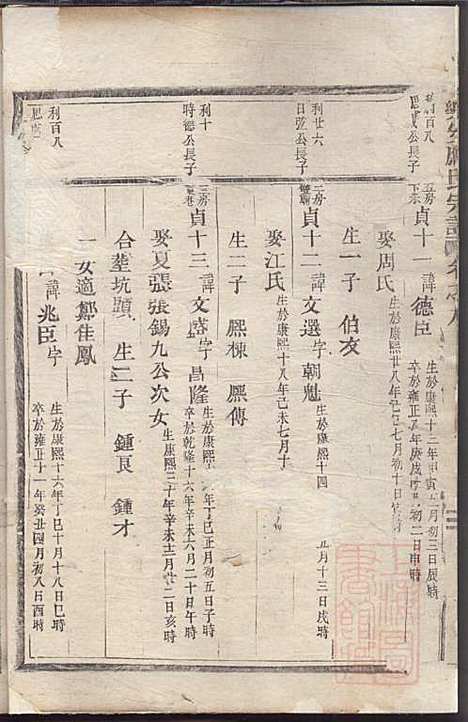 利百八
思貳公長子
五房
下東
貞十一 諱德臣
生於康熙十三年甲寅 月初三日辰時
卒於雍正 年庚戌 初二日申時
娶周氏 生於康熙廿八年己巳七月初十日
生一子 伯友
利廿六
日弦公長子
二房
貞十二 諱文選字朝魁
生於康熙十四 五月十三戌時
娶江氏 生於康熙十八年己未七月十
生二子 熙棟 熙傳
利十
時德公長子
三房
貞十三 諱文盛字昌隆
生於康熙十六年丁巳正月初五日子時
卒於乾隆十六年辛未六月二十日午時
娶夏張張錫九公次女 生康熙三十年辛未十二月廿二日亥時
合塟坑頭 生二子 鍾良 鍾才
一女適鄒佳鳳
利百八
諱兆臣字
生於康熙十六年丁巳十月十八日巳時
卒於雍正十一年癸丑四月初八日酉時